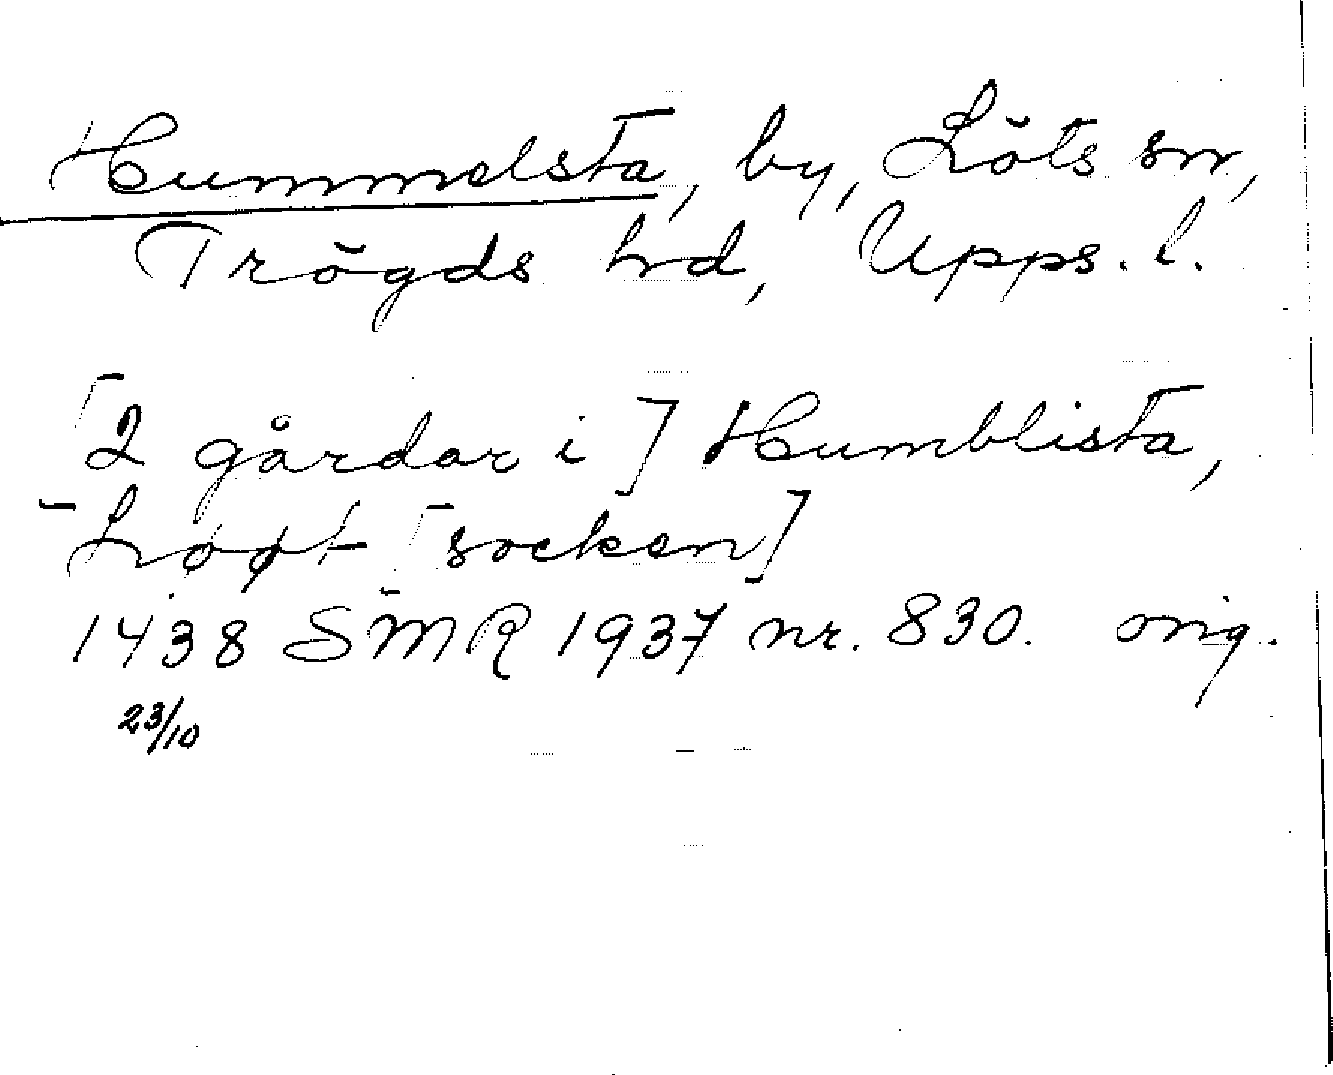 Hummelsta, by, Löts sn,
Trögds hd, Upps. l.
[2 gårdar i] Humblista,
Løøt [socken]
1438 SMR 1937 nr. 830. orig.
23/10